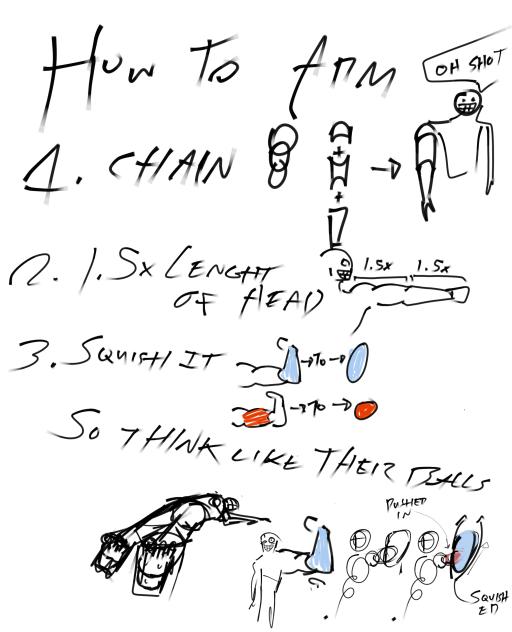 HOW TO ARM
OH SHOT
1. CHAIN
2. 1.5x LENGHT
OF HEAD
1.5x 1.5x
3. SQUISH IT
TO
TO
SO THINK LIKE THEIR BALLS
PUSHED
IN
SQUISH
ED